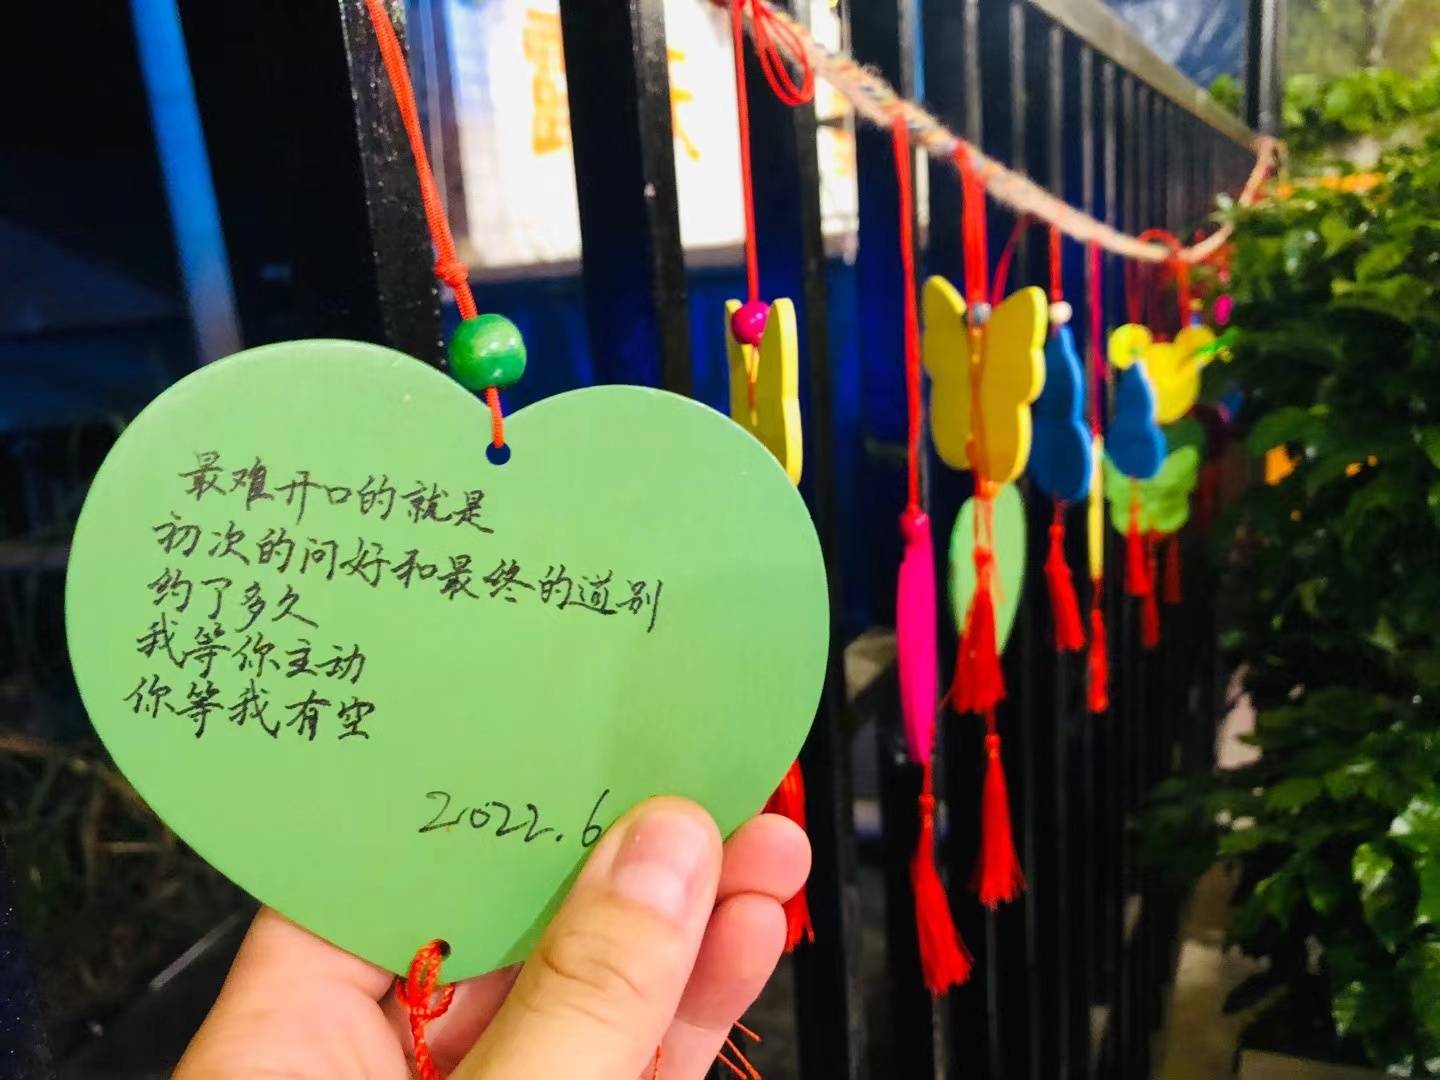 最难开口的就是
初次的问好和最终的道别
约了多久
我等你主动
你等我有空
2022.6